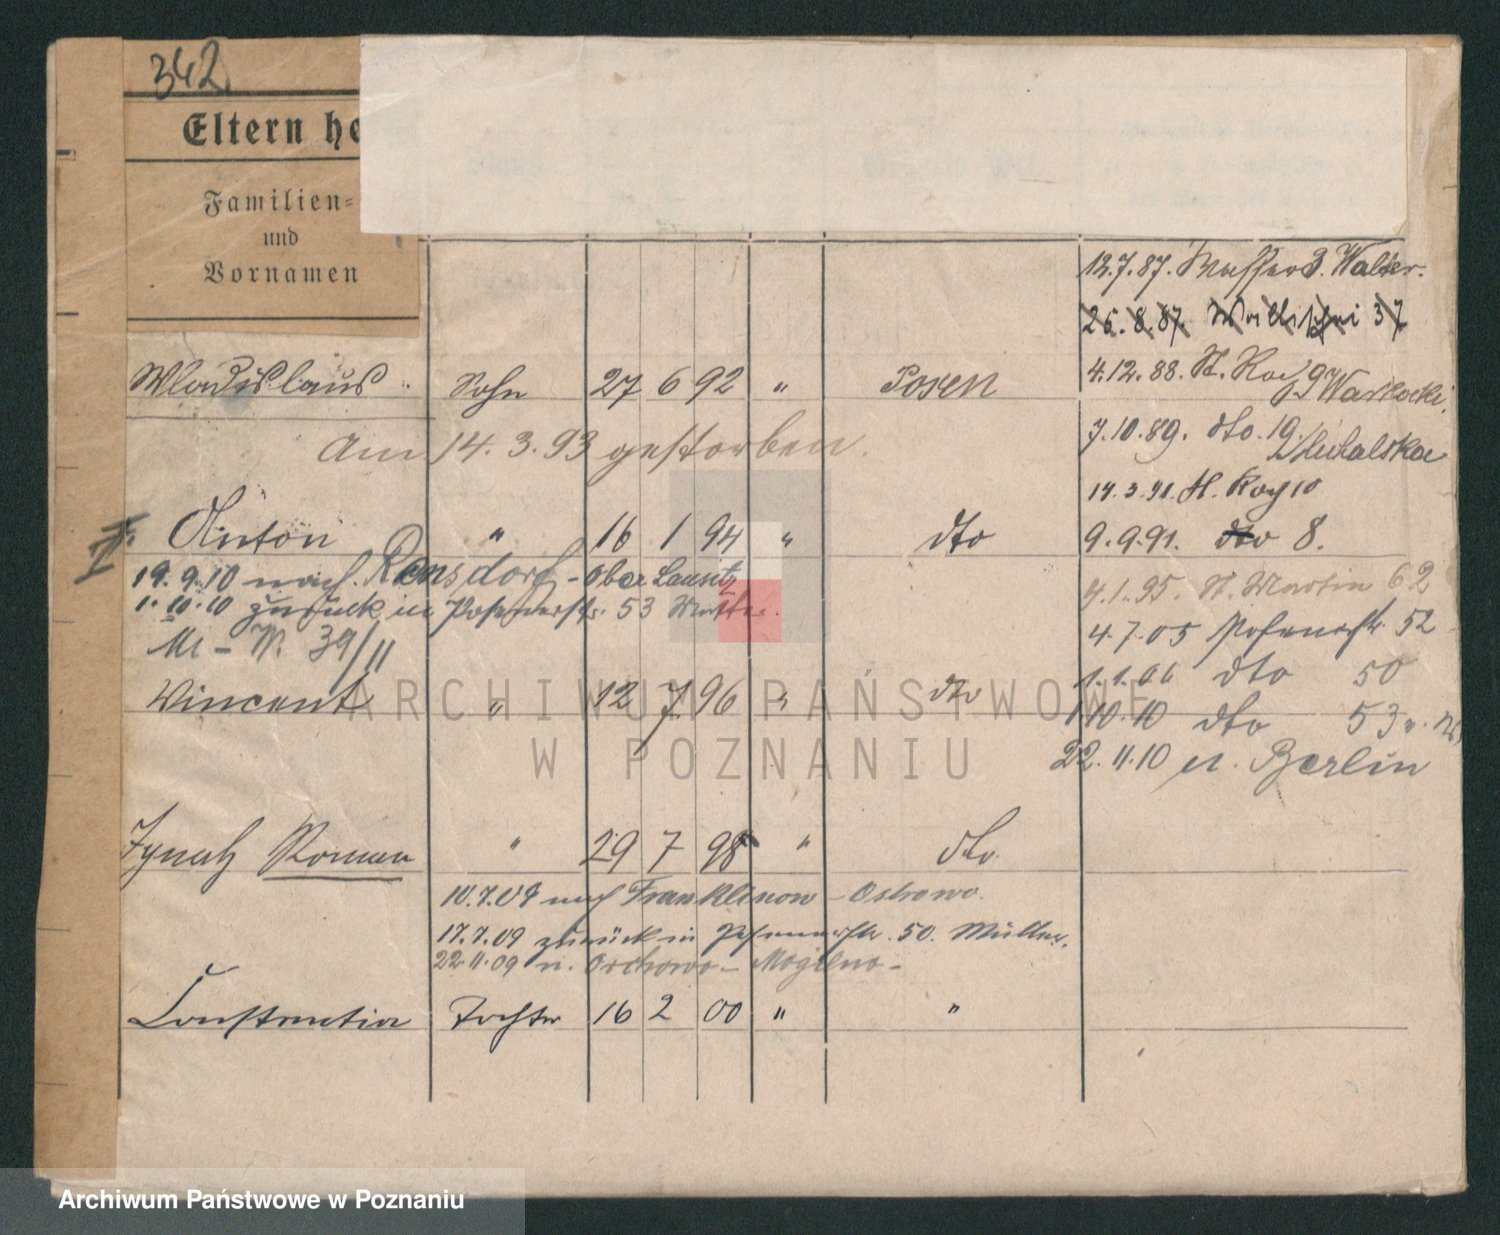 342.
Eltern he
Familien=
und
Vornamen
12.7.87. Wasserstr. Walter.
26.8.87. Wallischei 37
Wladislaus Sohn 27 6 92 " Posen
4.12.88. St. Roch 9
7.10.89. dto. 19
Am 14.3.93 gestorben.
14.3.91. St. Roch 10
Anton " 16 1 94 " dto
9.9.91. dto 8.
19.9.10 nach Rensdorf - Ober Lausitz
4.1.95. St. Martin 62
1.10.10 zurück in Posenerstr. 53 Mutter.
4.7.05 Posenerstr. 52
M - N. 39/11
1.1.06 dto 50
Vincent " 12 7 96 " dto
1.10.10 dto 53
22.11.10 n. Berlin
Ignatz Roman " 29 7 98 " dto.
10.7.09 nach Franklinow - Ostrowo.
17.7.09 zurück in Posenerstr. 50. Mutter.
22.11.09 n. Orchowo - Mogilno -
Constantia Tochter 16 2 00 " "
ARCHIWUM PAŃSTWOWE
W POZNANIU
Archiwum Państwowe w Poznaniu